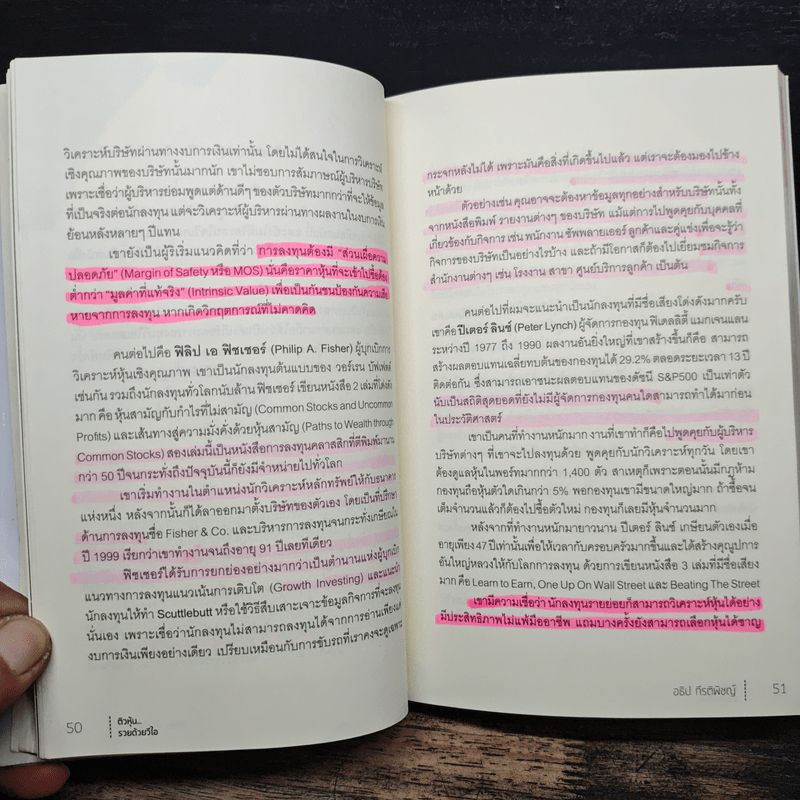 วิเคราะห์บริษัทผ่านทางงบการเงินเท่านั้น โดยไม่ได้สนใจในการวิเคราะห์
เชิงคุณภาพของบริษัทนั้นมากนัก เขาไม่ชอบการสัมภาษณ์ผู้บริหารบริษัท
เพราะเชื่อว่าผู้บริหารย่อมพูดแต่ด้านดีๆ ของตัวบริษัทมากกว่าที่จะให้ข้อมูล
ที่เป็นจริงต่อนักลงทุน แต่จะวิเคราะห์ผู้บริหารผ่านทางผลงานในงบการเงิน
ย้อนหลังหลายๆ ปีแทน
เขายังเป็นผู้ริเริ่มแนวคิดที่ว่า การลงทุนต้องมี "ส่วนเผื่อความ
ปลอดภัย" (Margin of Safety หรือ MOS) นั่นคือราคาหุ้นที่จะเข้าไปซื้อต้อง
ต่ำกว่า "มูลค่าที่แท้จริง" (Intrinsic Value) เพื่อเป็นกันชนป้องกันความเสีย
หายจากการลงทุน หากเกิดวิกฤตการณ์ที่ไม่คาดคิด
คนต่อไปคือ ฟิลิป เอ ฟิชเชอร์ (Philip A. Fisher) ผู้บุกเบิกการ
วิเคราะห์หุ้นเชิงคุณภาพ เขาเป็นนักลงทุนต้นแบบของ วอร์เรน บัฟเฟตต์
เช่นกัน รวมถึงนักลงทุนทั่วโลกนับล้าน ฟิชเชอร์ เขียนหนังสือ 2 เล่มที่โด่งดัง
มาก คือ หุ้นสามัญกับกำไรที่ไม่สามัญ (Common Stocks and Uncommon
Profits) และเส้นทางสู่ความมั่งคั่งด้วยหุ้นสามัญ (Paths to Wealth through
Common Stocks) สองเล่มนี้เป็นหนังสือการลงทุนคลาสสิกที่ตีพิมพ์มานาน
กว่า 50 ปีจนกระทั่งถึงปัจจุบันนี้ก็ยังมีจำหน่ายไปทั่วโลก
เขาเริ่มทำงานในตำแหน่งนักวิเคราะห์หลักทรัพย์ให้กับธนาคาร
แห่งหนึ่ง หลังจากนั้นก็ได้ลาออกมาตั้งบริษัทของตัวเอง โดยเป็นที่ปรึกษา
ด้านการลงทุนชื่อ Fisher & Co. และบริหารการลงทุนจนกระทั่งเกษียณใน
ปี 1999 เรียกว่าเขาทำงานจนถึงอายุ 91 ปีเลยทีเดียว
ฟิชเชอร์ได้รับการยกย่องอย่างมากว่าเป็นตำนานแห่งผู้บุกเบิก
แนวทางการลงทุนแนวเน้นการเติบโต (Growth Investing) และแนะนำ
นักลงทุนให้ทำ Scuttlebutt หรือใช้วิธีสืบเสาะเจาะข้อมูลกิจการที่จะลงทุน
นั่นเอง เพราะเชื่อว่านักลงทุนไม่สามารถลงทุนได้จากการอ่านเพียงแค่
งบการเงินเพียงอย่างเดียว เปรียบเหมือนกับการขับรถที่เราคงจะดูเฉพาะ
50
ติวหุ้น...
รวยด้วยวีไอ
กระจกหลังไม่ได้ เพราะมันคือสิ่งที่เกิดขึ้นไปแล้ว แต่เราจะต้องมองไปข้าง
หน้าด้วย
ตัวอย่างเช่น คุณอาจจะต้องหาข้อมูลทุกอย่างสำหรับบริษัทนั้นทั้ง
จากหนังสือพิมพ์ รายงานต่างๆ ของบริษัท แม้แต่การไปพูดคุยกับบุคคลที่
เกี่ยวข้องกับกิจการ เช่น พนักงาน ซัพพลายเออร์ ลูกค้าและคู่แข่งเพื่อจะรู้ว่า
กิจการของบริษัทเป็นอย่างไรบ้าง และถ้ามีโอกาสก็ต้องไปเยี่ยมชมกิจการ
สำนักงานต่างๆ เช่น โรงงาน สาขา ศูนย์บริการลูกค้า เป็นต้น
คนต่อไปที่ผมจะแนะนำเป็นนักลงทุนที่มีชื่อเสียงโด่งดังมากครับ
เขาคือ ปีเตอร์ ลินช์ (Peter Lynch) ผู้จัดการกองทุน ฟิเดลลิตี้ แมกเจนแลน
ระหว่างปี 1977 ถึง 1990 ผลงานอันยิ่งใหญ่ที่เขาสร้างขึ้นก็คือ สามารถ
สร้างผลตอบแทนเฉลี่ยทบต้นของกองทุนได้ 29.2% ตลอดระยะเวลา 13 ปี
ติดต่อกัน ซึ่งสามารถเอาชนะผลตอบแทนของดัชนี S&P500 เป็นเท่าตัว
นับเป็นสถิติสุดยอดที่ยังไม่มีผู้จัดการกองทุนคนใดสามารถทำได้มาก่อน
ในประวัติศาสตร์
เขาเป็นคนที่ทำงานหนักมาก งานที่เขาทำก็คือไปพูดคุยกับผู้บริหาร
บริษัทต่างๆ ที่เขาจะไปลงทุนด้วย พูดคุยกับนักวิเคราะห์ทุกวัน โดยเขา
ต้องดูแลหุ้นในพอร์ทมากกว่า 1,400 ตัว สาเหตุก็เพราะตอนนั้นมีกฎห้าม
กองทุนถือหุ้นตัวใดเกินกว่า 5% พอกองทุนเขามีขนาดใหญ่มาก ถ้าซื้อจน
เต็มจำนวนแล้วก็ต้องไปซื้อตัวใหม่ กองทุนก็เลยมีหุ้นจำนวนมาก
หลังจากที่ทำงานหนักมายาวนาน ปีเตอร์ ลินช์ เกษียนตัวเองเมื่อ
อายุเพียง 47 ปีเท่านั้นเพื่อให้เวลากับครอบครัวมากขึ้นและได้สร้างคุณูปการ
อันใหญ่หลวงให้กับโลกการลงทุน ด้วยการเขียนหนังสือ 3 เล่มที่มีชื่อเสียง
มาก คือ Learn to Earn, One Up On Wall Street และ Beating The Street
เขามีความเชื่อว่า นักลงทุนรายย่อยก็สามารถวิเคราะห์หุ้นได้อย่าง
มีประสิทธิภาพไม่แพ้มืออาชีพ แถมบางครั้งยังสามารถเลือกหุ้นได้ชาญ
อธิป กีรติพิชญ์
51